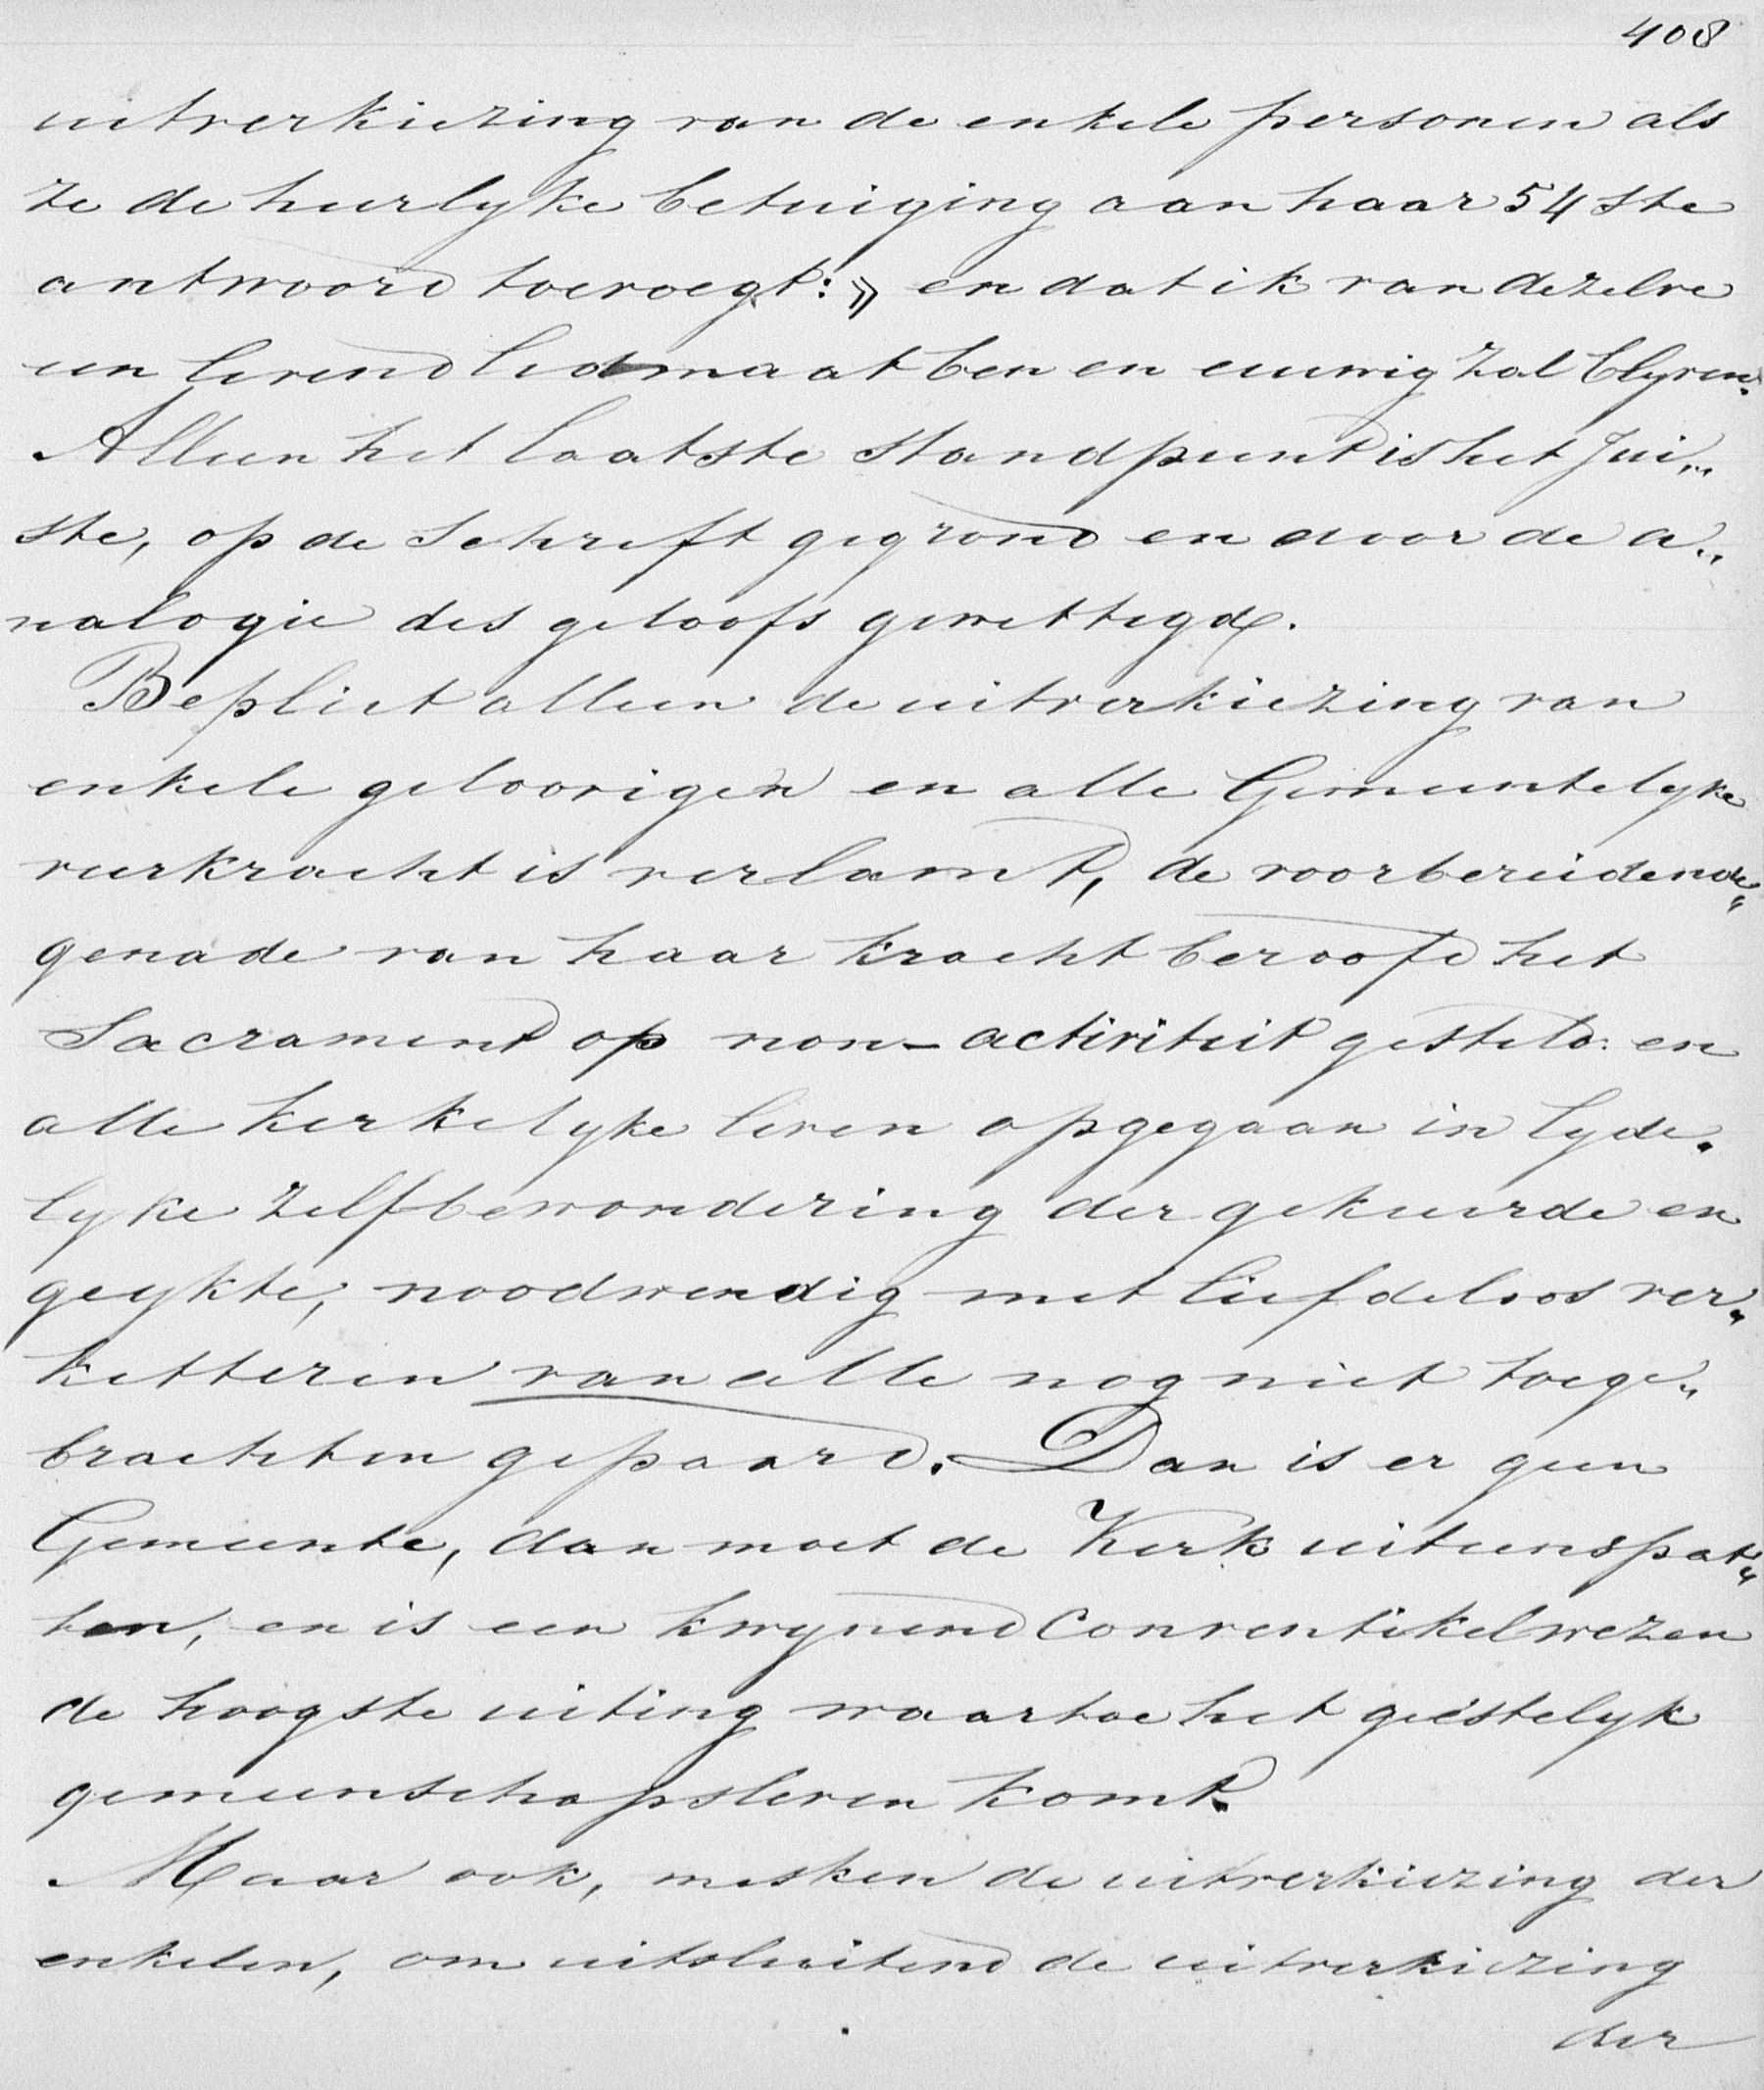 408
uitverkiezing van de enkele personen als
ze de heerlyke betuiging aan haar 54ste
antwoord toevoegt: » en dat ik van dezelve
een levend lidmaat ben en eeuwig zal blyven.
Alleen het laatste standpunt is het jui„
ste, op de Schrift gegrond en door de a„
nalogie des geloofs gewettigd.
Bepliet alleen de uitverkiezing van
enkele geloovigen en alle Gemeentelyke
veerkracht is verlamt, de voorbereidende„
genade van haar kracht beroofd het
Sacrament op non-activiteit gesteld en
alle kerkelyke leven opgegaan in lyde„
lyke zelfbewondering der gekeurde en
geykte, noodwendig met liefdeloos ver„
ketteren van alle nog niet toege„
brachten gepaard. Dan is er geen
Gemeente, dan moet de Kerk uiteenspat„
ten, en is een kwynend Conventikelwezen
de hoogste uiting waartoe het geestelyk
gemeenschapsleven komt.
Maar ook, misken de uitverkiezing der
enkelen, om uitsluitend de uitverkiezing
der